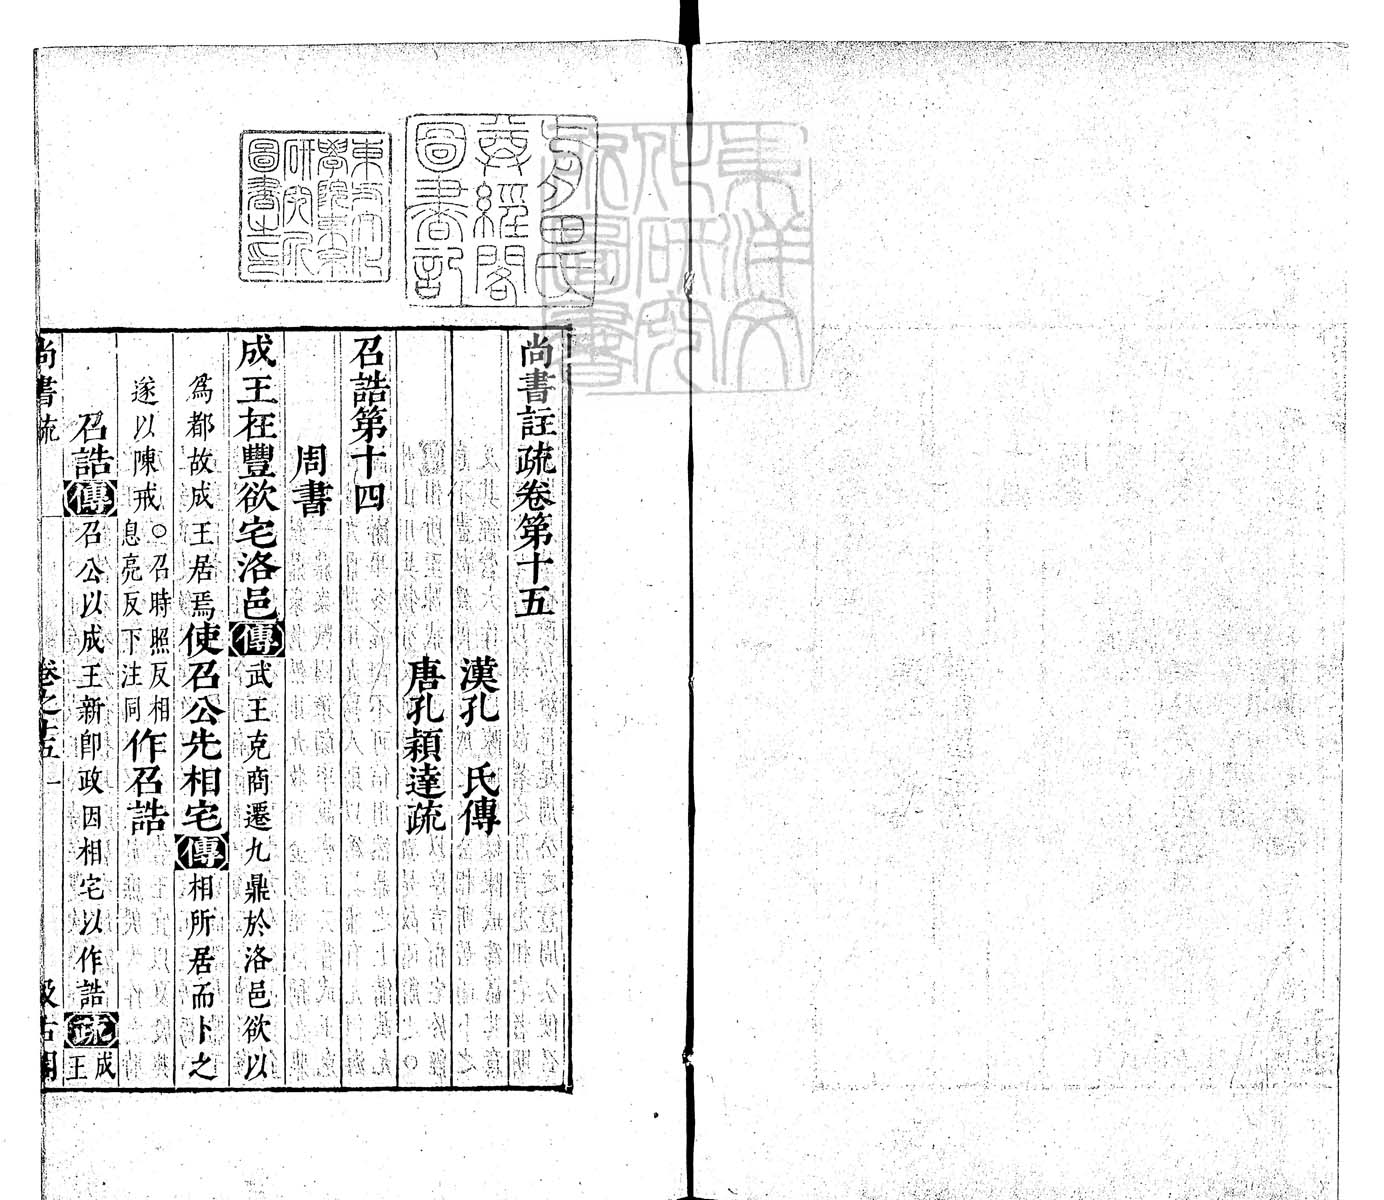 尚書註疏卷第十五
漢孔　氏傳
唐孔穎達疏
召誥第十四
周書
成王在豐欲宅洛邑傳武王克商遷九鼎於洛邑欲以
為都故成王居焉使召公先相宅傳相所居而卜之
遂以陳戒○召時照反相息亮反下注同作召誥
召誥傳召公以成王新即政因相宅以作誥疏成王
尚書疏　卷之十五　一　汲古閣
有前田氏
尊經閣
圖書記
東方文化
學院東京
研究所
圖書之印
東洋文
化研究
所圖書